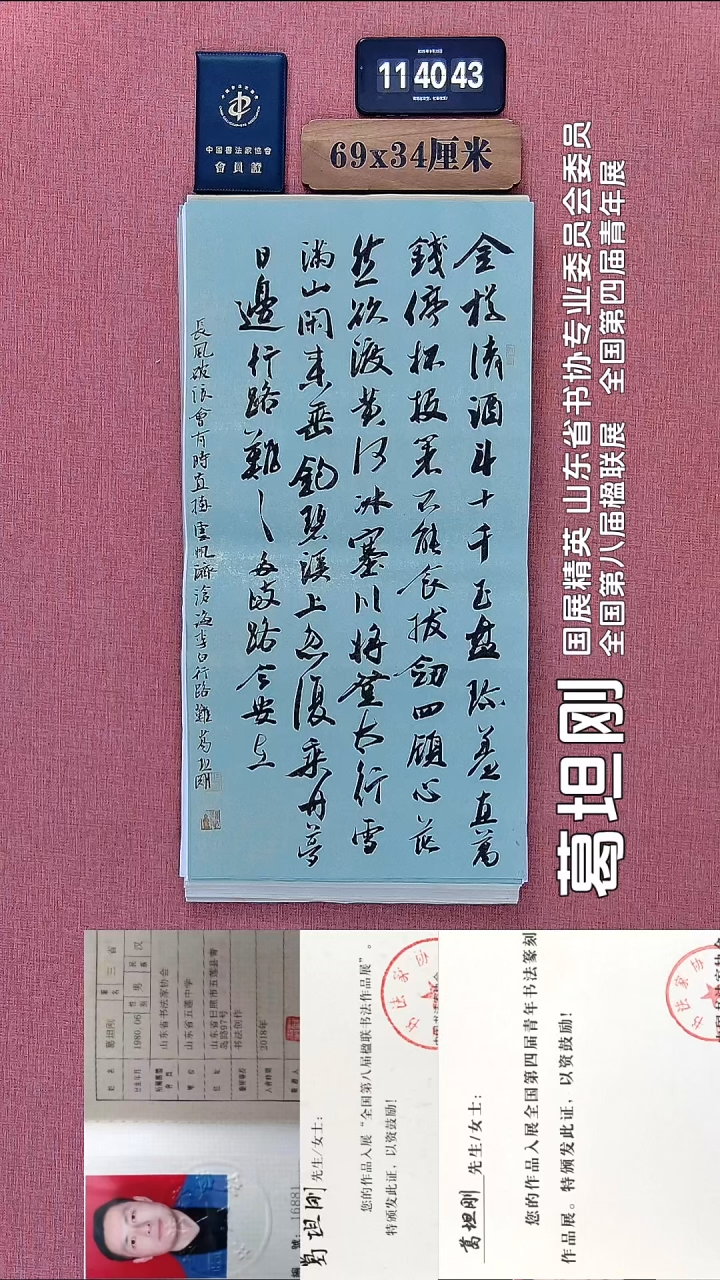 中國書法家協會
會員證
11 40 43
69x34厘米
金樽清酒斗十千玉盤珍羞直萬
錢停杯投箸不能食拔劍四顧心茫
然欲渡黄河冰塞川將登太行雪
滿山閑來垂釣碧溪上忽復乘舟夢
日邊行路難〻多歧路今安在
長風破浪會有時直掛雲帆濟滄海李白行路難葛坦剛
葛坦刚
国展精英 山东省书协专业委员会委员
全国第八届楹联展 全国第四届青年展
姓名 葛坦刚
1980.06 性别 男 民族 汉
山东省书法家协会
山东省五莲中学
山东省日照市五莲县青
岛路97号
书法创作
2018年
編號：16881
葛坦刚 先生/女士：
您的作品入展“全国第八届楹联书法作品展”。
特颁发此证，以资鼓励！
葛坦刚 先生/女士：
您的作品入展全国第四届青年书法篆刻
作品展。特颁发此证，以资鼓励！